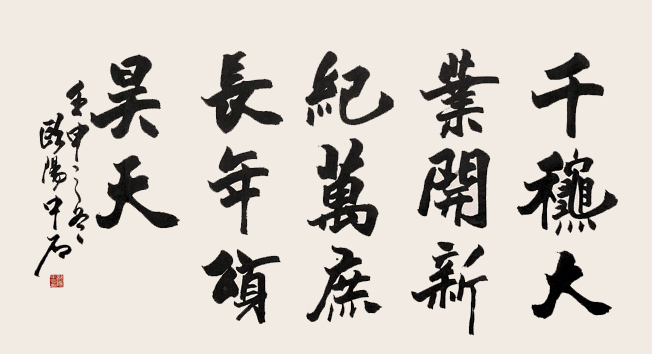 千龝大
業開新
紀萬庶
長年頌
昊天
壬申之冬
歐陽中石